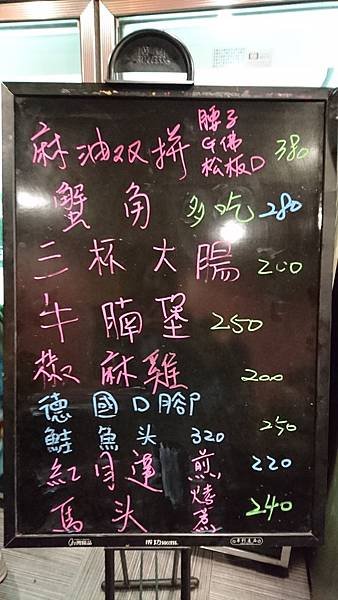 麻油双拼 腰子 G佛 松板D 380
蟹角 多吃 280
三杯大腸 200
牛腩堡 250
椒麻雞 200
德國D腳 250
鮭魚头 320
紅目連 煎,烤 220
馬头 煮 240